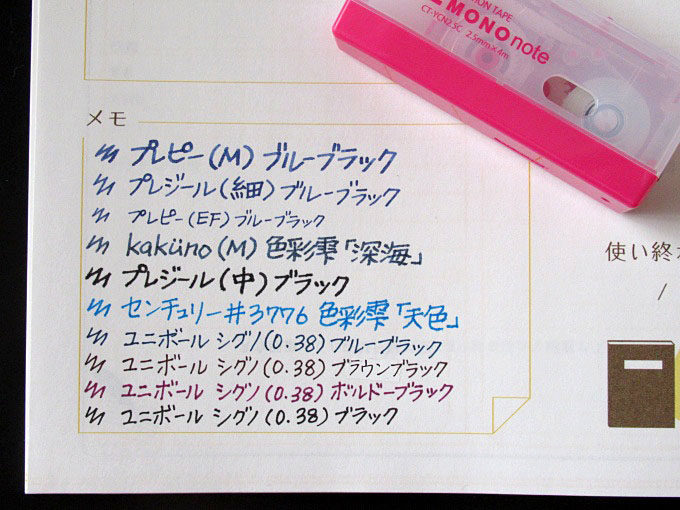 ION TAPE
MONO note
CT-YCN2.5C 2.5mm×4m
メモ
プレピー(M) ブルーブラック
プレジール(細) ブルーブラック
プレピー(EF) ブルーブラック
kaküno (M) 色彩雫「深海」
プレジール(中) ブラック
センチュリー#3776 色彩雫「天色」
ユニボール シグノ(0.38) ブルーブラック
ユニボール シグノ(0.38) ブラウンブラック
ユニボール シグノ(0.38) ボルドーブラック
ユニボール シグノ(0.38) ブラック
使い終わ
/